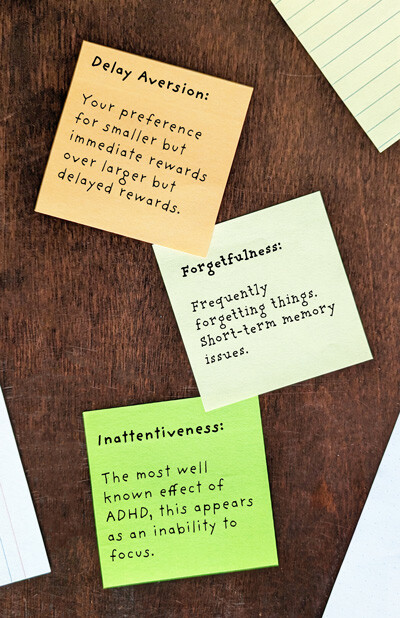 Delay Aversion:
Your preference
for smaller but
immediate rewards
over larger but
delayed rewards.
Forgetfulness:
Frequently
forgetting things.
Short-term memory
issues.
Inattentiveness:
The most well
known effect of
ADHD, this appears
as an inability to
focus.